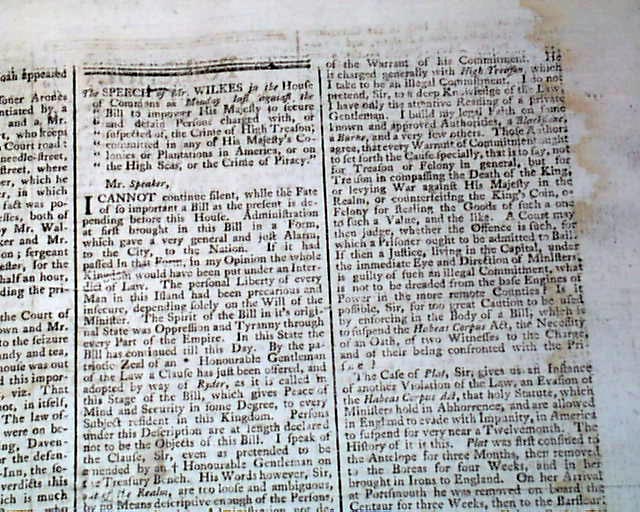 oah appeared
soner Arones
ntiated by, a
and a Mr.
rt, who keeps
n Court road:
needle-street,
street, where
er, which he
er, in which
act was po-
esses, both of
y Mr. Wal-
ker and Mr.
on; sergeant
ester, for the
half an hour,
ding the pri-
the Court of
own and Mr.
to the seizure
andy and tea,
house was out
d this impor-
viz. that
not, in itself,
The law of-
were on be-
ng, Daven-
or the defen-
-Inn, the se-
verdict this
ich is much
who
The SPEECH of Mr. WILKES in the House
of Commons on Monday last against the
" Bill to impower His Majesty to secure
" and detain Persons charged with, or
" suspected of, the Crime of High Treason,
" committed in any of His Majesty's Co-
" lonies or Plantations in America, or on
" the High Seas, or the Crime of Piracy."
Mr. Speaker,
I CANNOT continue silent, while the Fate
of so important a Bill as the present is de-
pending before this House. Administration
at first brought in this Bill in a Form,
which gave a very general and just Alarm,
to the City, to the Nation. If it had
passed in that Form, in my Opinion the whole
Kingdom would have been put under an Inter-
dict of Law. The personal Liberty of every
Man in this Island had been precarious and
insecure, depending solely on the Will of the
Minister. The Spirit of the Bill in it's origi-
nal State was Oppression and Tyranny through
every Part of the Empire. In this State the
Bill has continued till this Day. By the pa-
triotic Zeal of an * Honourable Gentleman
of the Law a Clause has just been offered, and
adopted by way of Ryder, as it is called in
this Stage of the Bill, which gives Peace of
Mind and Security in some Degree, to every
Subject resident in this Kingdom. Persons
under this Description are at length declared
not to be the Objects of this Bill. I speak of
the Clause, Sir, even as pretended to be
amended by an † Honourable Gentleman on
the Treasury Bench. His Words however, Sir,
out of the Realm, are too loose and ambiguous,
by no Means descriptive enough of the Persons,
Administration not des
of the Warrant of his Commitment. He
is charged generally with High Treason, which
I take to be an illegal Commitment. I do not
pretend, Sir, to a deep Knowledge of the Law:
I have only the attentive Reading of a private
Gentleman. I build my legal Faith on some
known and approved Authorities, a Blackstone,
a Burne, and a few others. Those Authors
agree, that every Warrant of Commitment ought
to set forth the Cause specially, that is to say, not
for Treason or Felony in general, but for
Treason in compassing the Death of the King,
or levying War against His Majesty in the
Realm, or counterfeiting the King's Coin, or
Felony for stealing the Goods of such a one
to such a Value, and the like. A Court may
then judge, whether the Offence is such, for
which a Prisoner ought to be admitted to Bail.
If then a Justice, living in the Capital, under
the immediate Eye and Direction of Ministers,
is guilty of such an illegal Commitment, what
is not to be dreaded from the base Engines of
Power in the more remote Counties? Is it
possible, Sir, for too great Caution to be used
by enforcing in the Body of a Bill, which is
to suspend the Habeas Corpus Act, the Necessity
of an Oath, of two Witnesses to the Charge,
and of their being confronted with the Pri-
The Case of Plat, Sir, gives us an Instance
of another Violation of the Law, an Evasion of
the Habeas Corpus Act, that holy Statute, which
Ministers hold in Abhorrence, and are allowed
in England to evade with Impunity, in America
to suspend for very near a Twelvemonth. The
History of it is this. Plat was first confined to
the Antelope for three Months, then removed
to the Boreas for four Weeks, and in her
brought in Irons to England. On her Arrival
at Portsmouth he was removed on board the
Centaur for three Weeks, then to the Barfleur